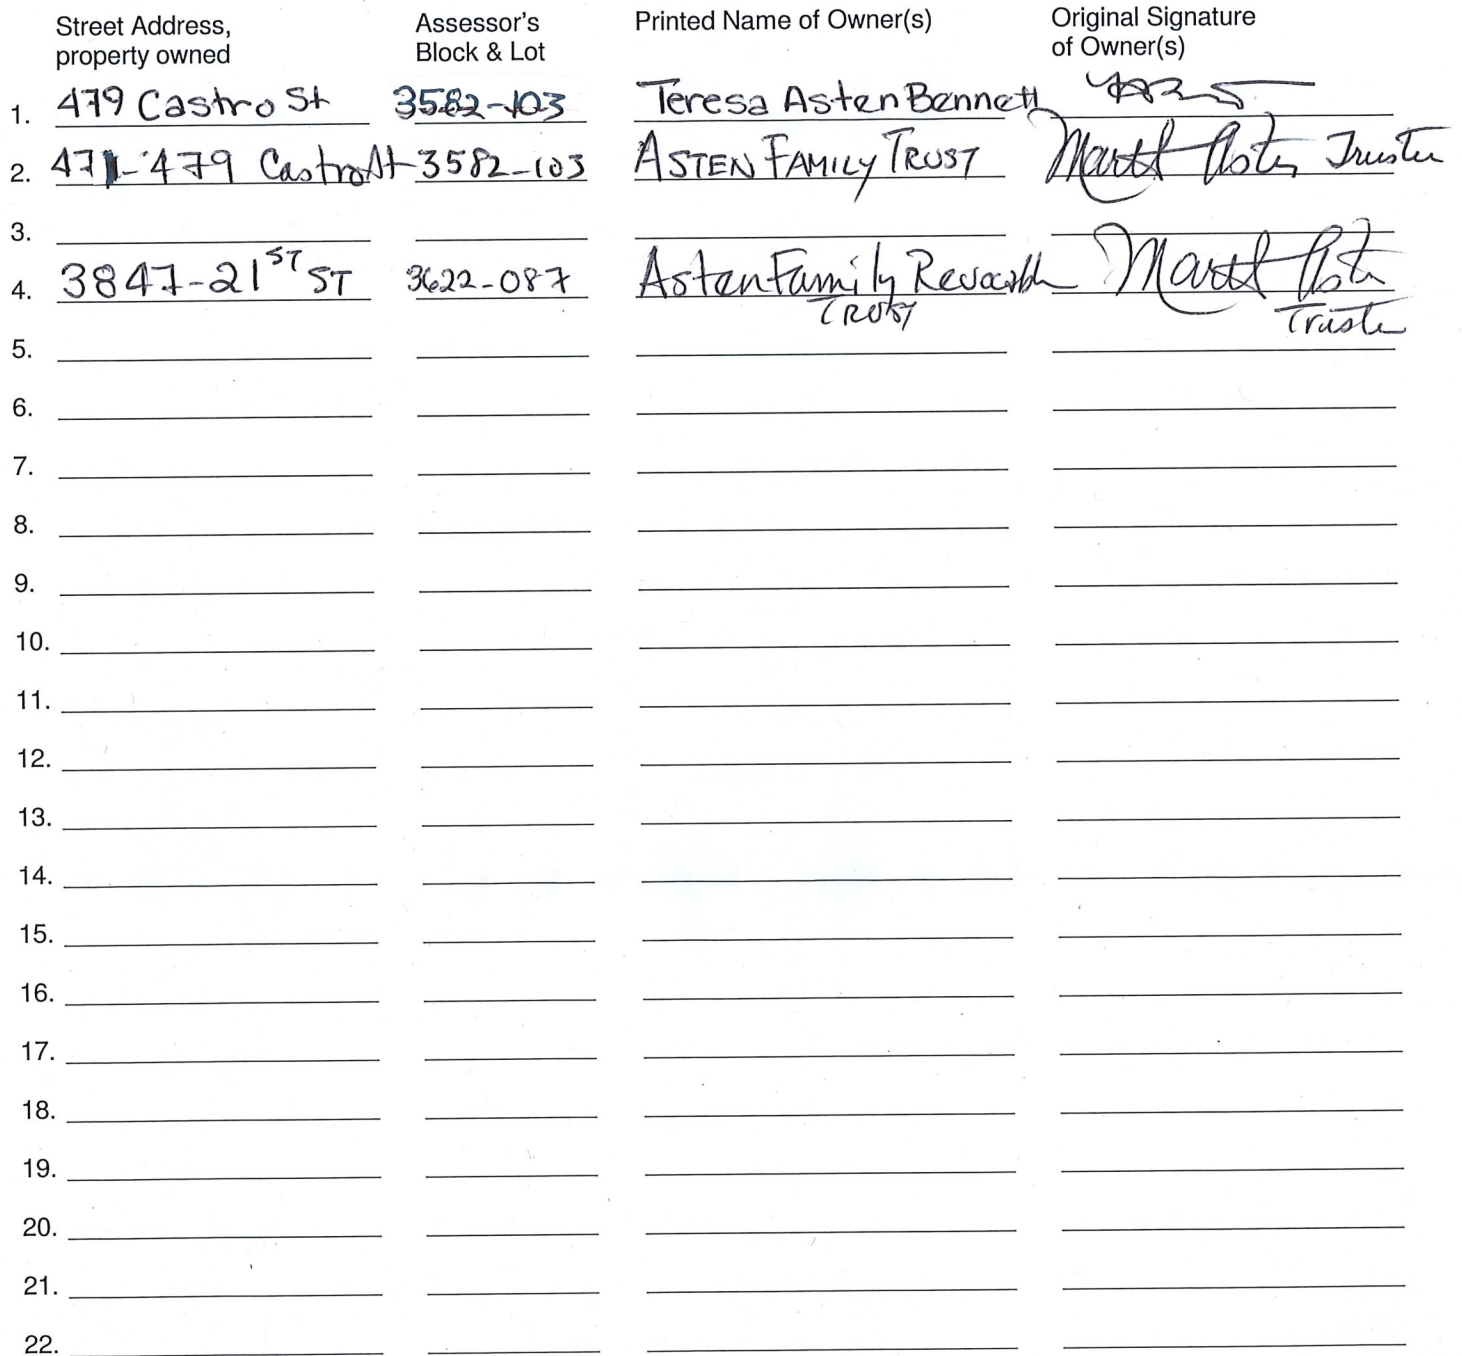 Street Address, property owned Assessor's Block & Lot Printed Name of Owner(s) Original Signature of Owner(s)
1. 479 Castro St 3582-103 Teresa Asten Bennett
2. 471-479 Castro St 3582-103 ASTEN FAMILY TRUST Asten Trustee
3.
4. 3847-21ST ST 3622-087 Asten Family Revocable TRUST Asten Trustee
5.
6.
7.
8.
9.
10.
11.
12.
13.
14.
15.
16.
17.
18.
19.
20.
21.
22.